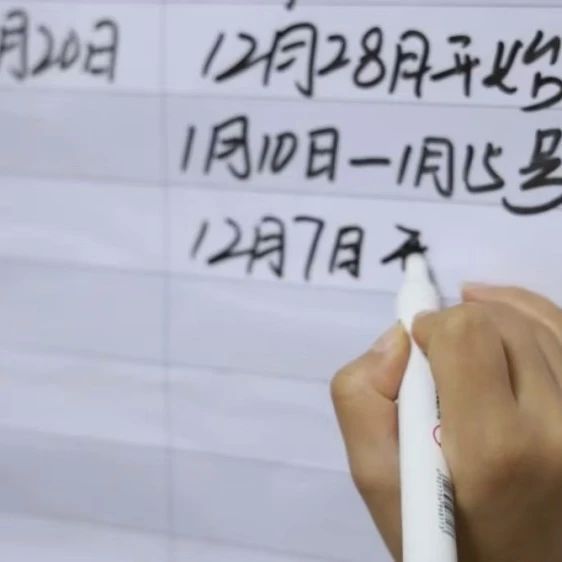 月20日 12月28日开始
1月10日-1月15号
12月7日开